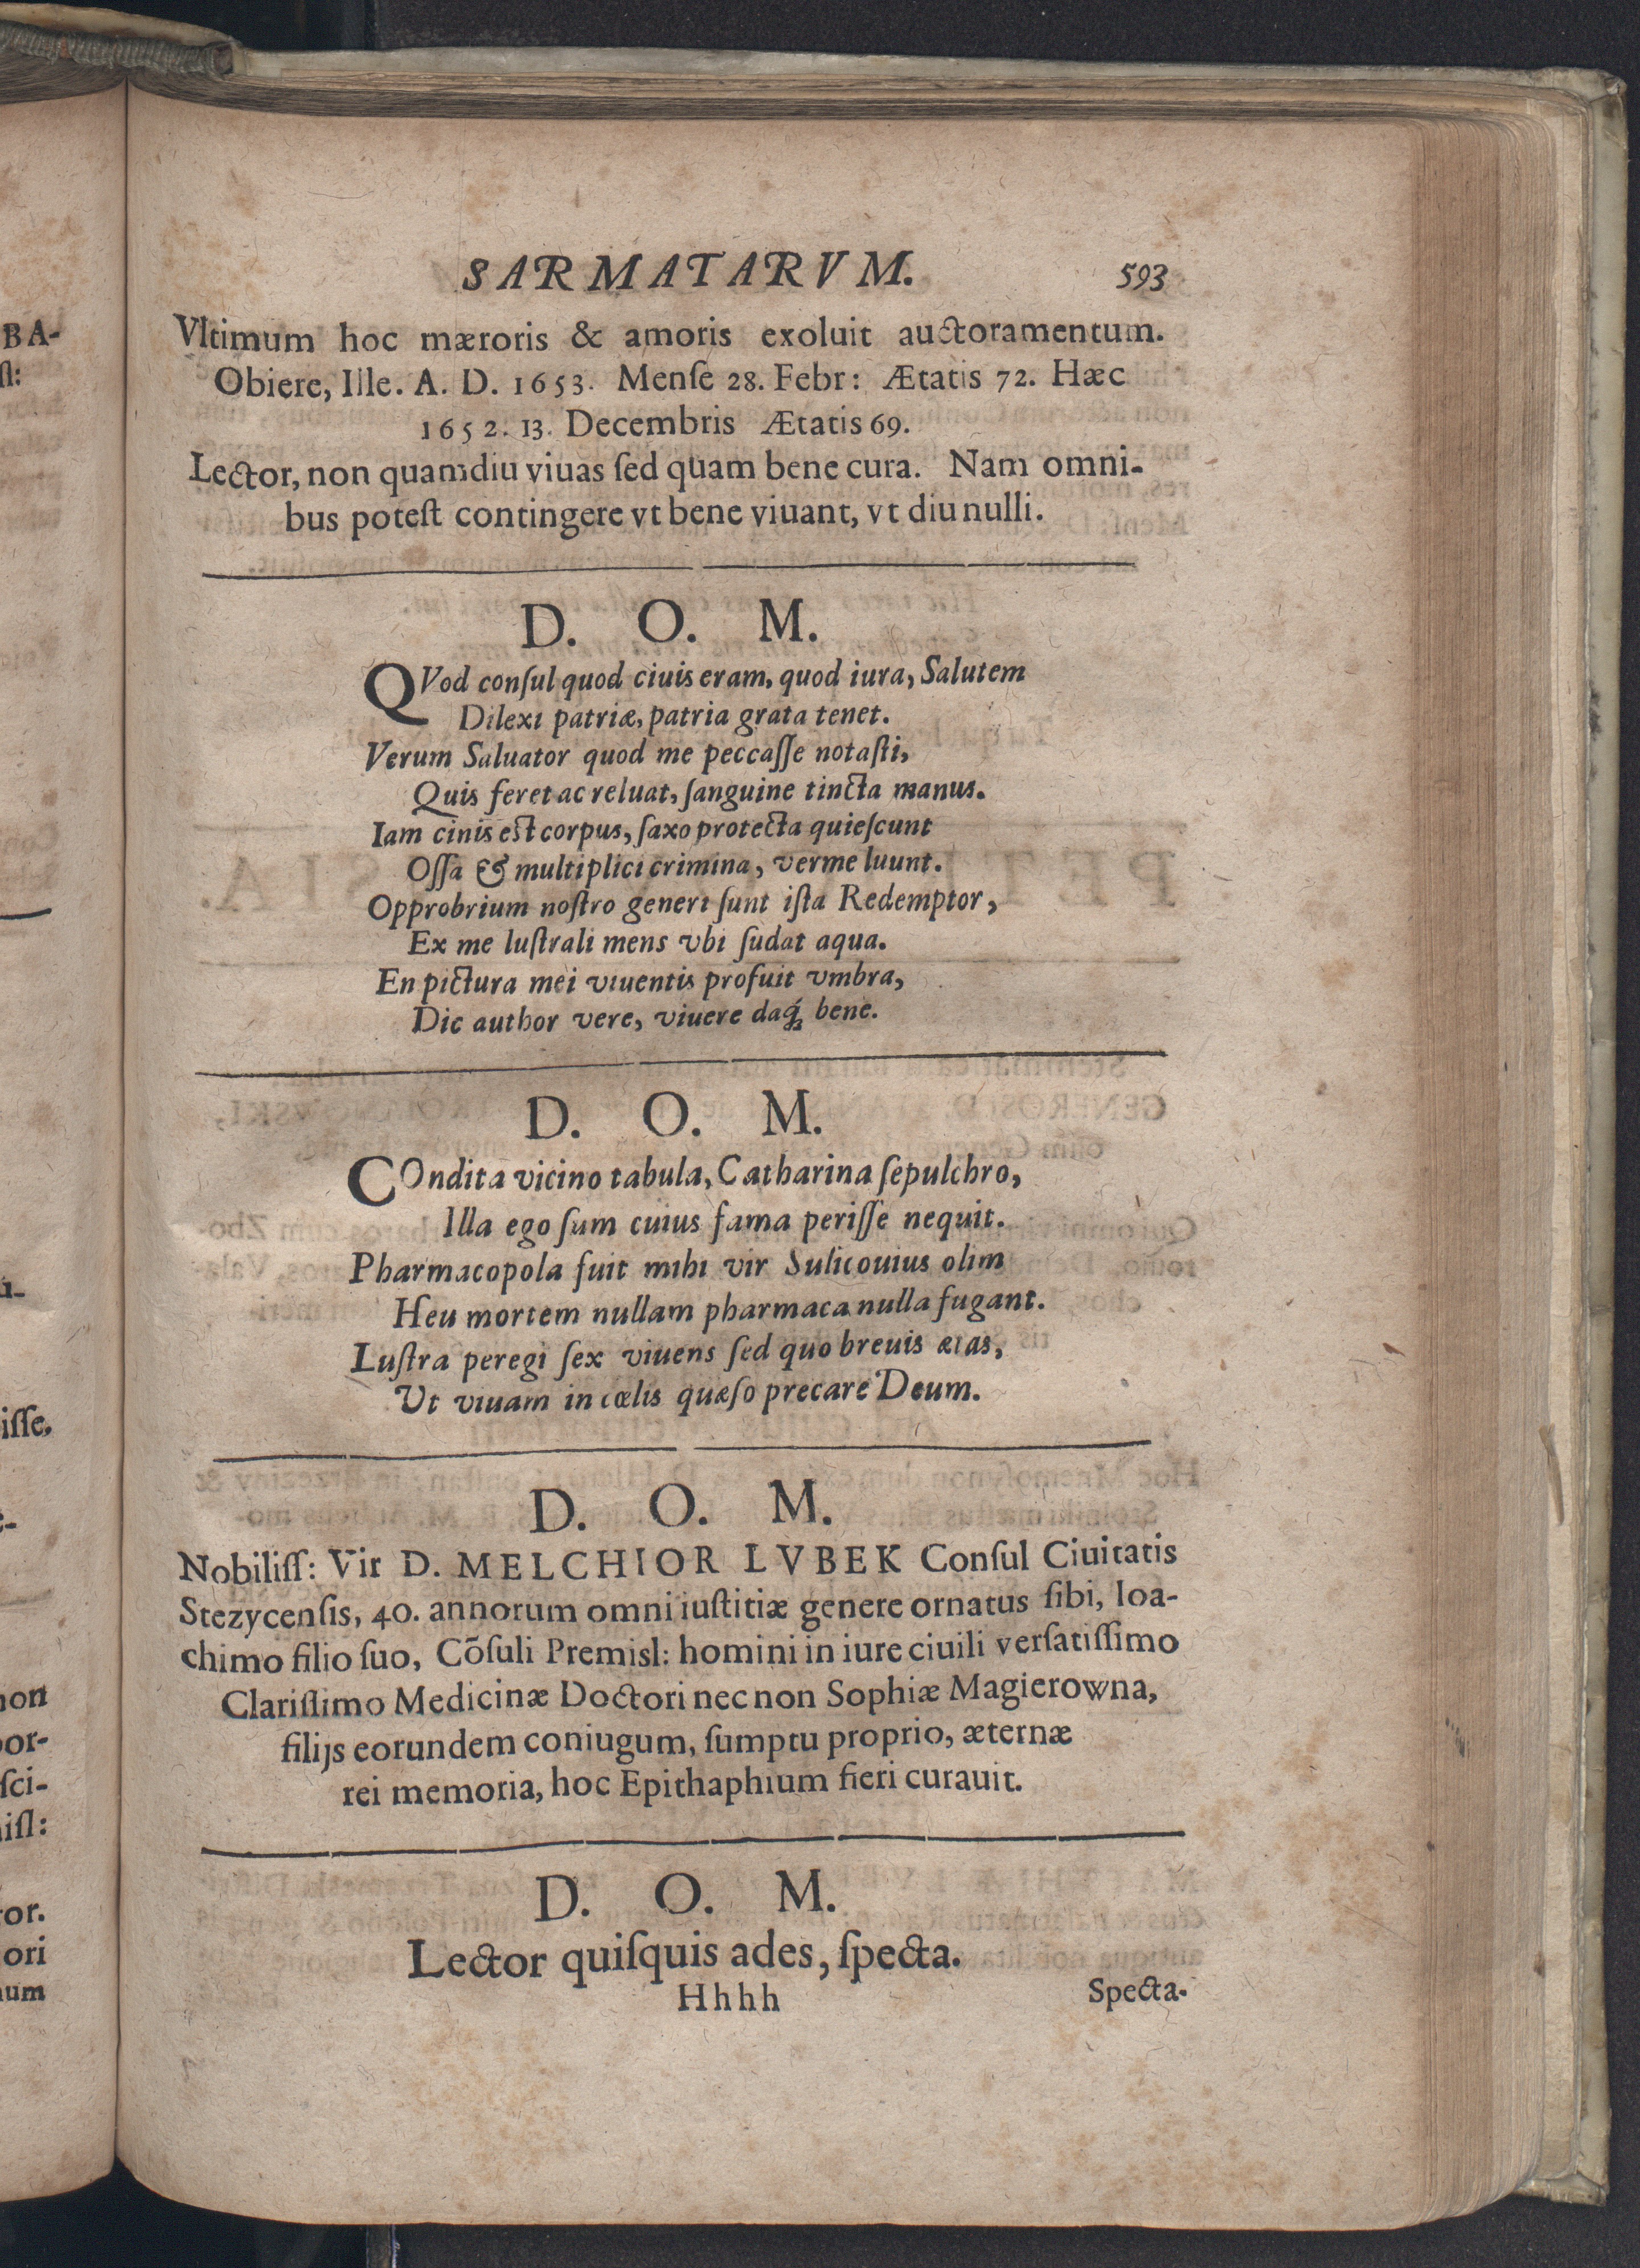 SARMATARVM. 593
Vltimum hoc mæroris & amoris exoluit auctoramentum.
Obiere, Ille. A. D. 1653. Menſe 28. Febr: Ætatis 72. Hæc
1652. 13. Decembris Ætatis 69.
Lector, non quamdiu viuas ſed quam bene cura. Nam omni-
bus poteſt contingere vt bene viuant, vt diu nulli.
D. O. M.
QVod conſul quod ciuis eram, quod iura, Salutem
Dilexi patriæ, patria grata tenet.
Verum Saluator quod me peccaſſe notaſti,
Quis feret ac reluat, ſanguine tincta manus.
Iam cinis est corpus, ſaxo protecta quieſcunt
Oſſa & multiplici crimina, verme luunt.
Opprobrium noſtro generi ſunt iſta Redemptor,
Ex me luſtrali mens vbi ſudat aqua.
En pictura mei viuentis profuit vmbra,
Dic author vere, viuere daq́; bene.
D. O. M.
COndita vicino tabula, Catharina ſepulchro,
Illa ego ſum cuius fama periſſe nequit.
Pharmacopola fuit mihi vir Sulicouius olim
Heu mortem nullam pharmaca nulla fugant.
Luſtra peregi ſex viuens ſed quo breuis ætas,
Ut viuam in cœlis quæſo precare Deum.
D. O. M.
Nobiliſſ: Vir D. MELCHIOR LVBEK Conſul Ciuitatis
Stezycenſis, 40. annorum omni iuſtitiæ genere ornatus ſibi, Ioa-
chimo filio ſuo, Cõſuli Premisl: homini in iure ciuili verſatiſſimo
Clariſſimo Medicinæ Doctori nec non Sophiæ Magierowna,
filijs eorundem coniugum, ſumptu proprio, æternæ
rei memoria, hoc Epithaphium fieri curauit.
D. O. M.
Lector quiſquis ades, ſpecta.
Hhhh Specta-